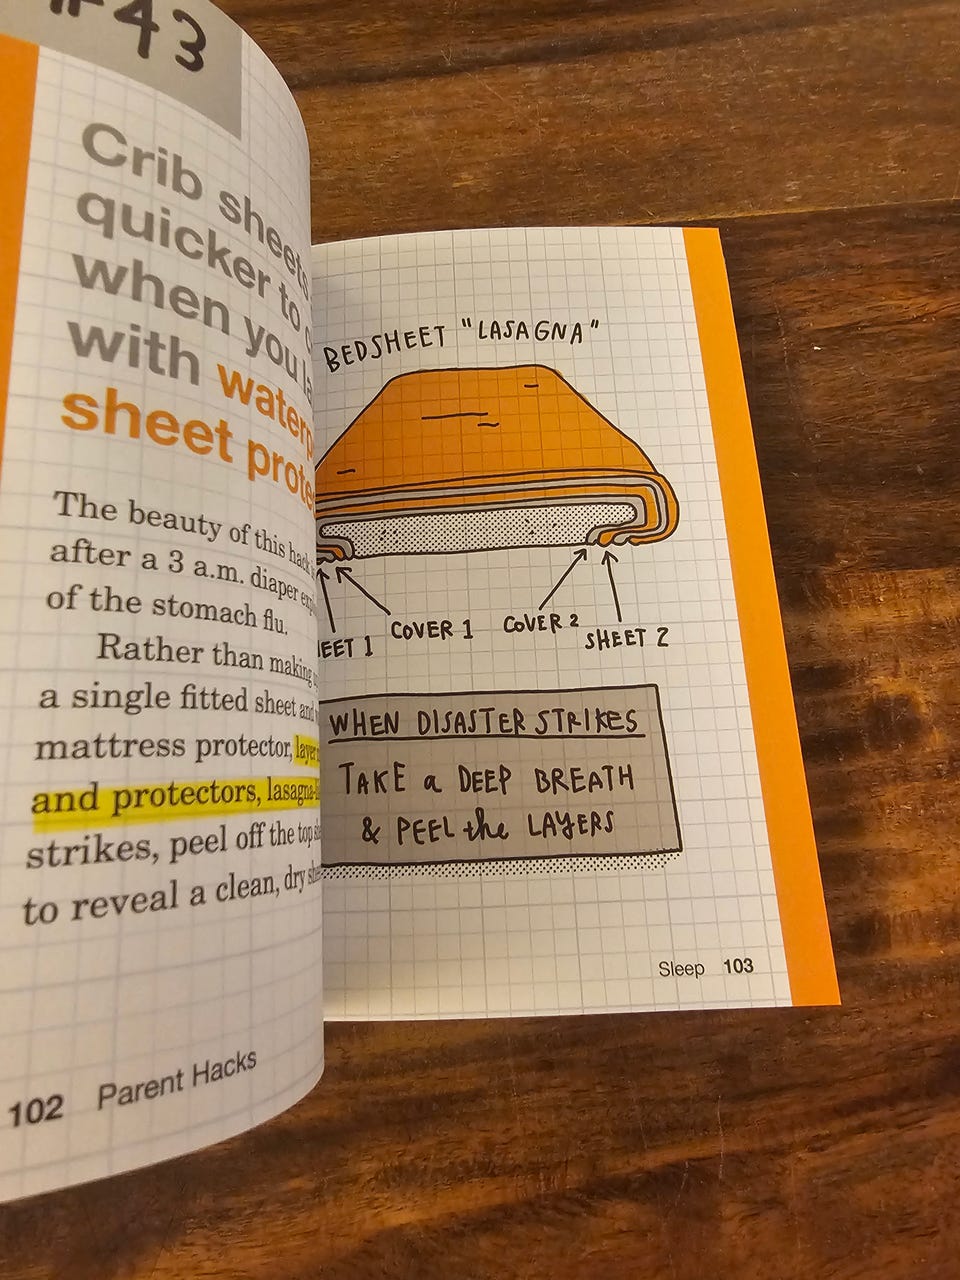 #43
Crib sheets
quicker to
when you
with
sheet
The beauty of this hack
after a 3 a.m. diaper
of the stomach flu.
Rather than making
a single fitted sheet and
mattress protector,
and protectors,
strikes, peel off the top
to reveal a clean, dry
102 Parent Hacks
BEDSHEET "LASAGNA"
COVER 1
COVER 2
SHEET 2
1
WHEN DISASTER STRIKES
TAKE a DEEP BREATH
& PEEL the LAYERS
Sleep 103